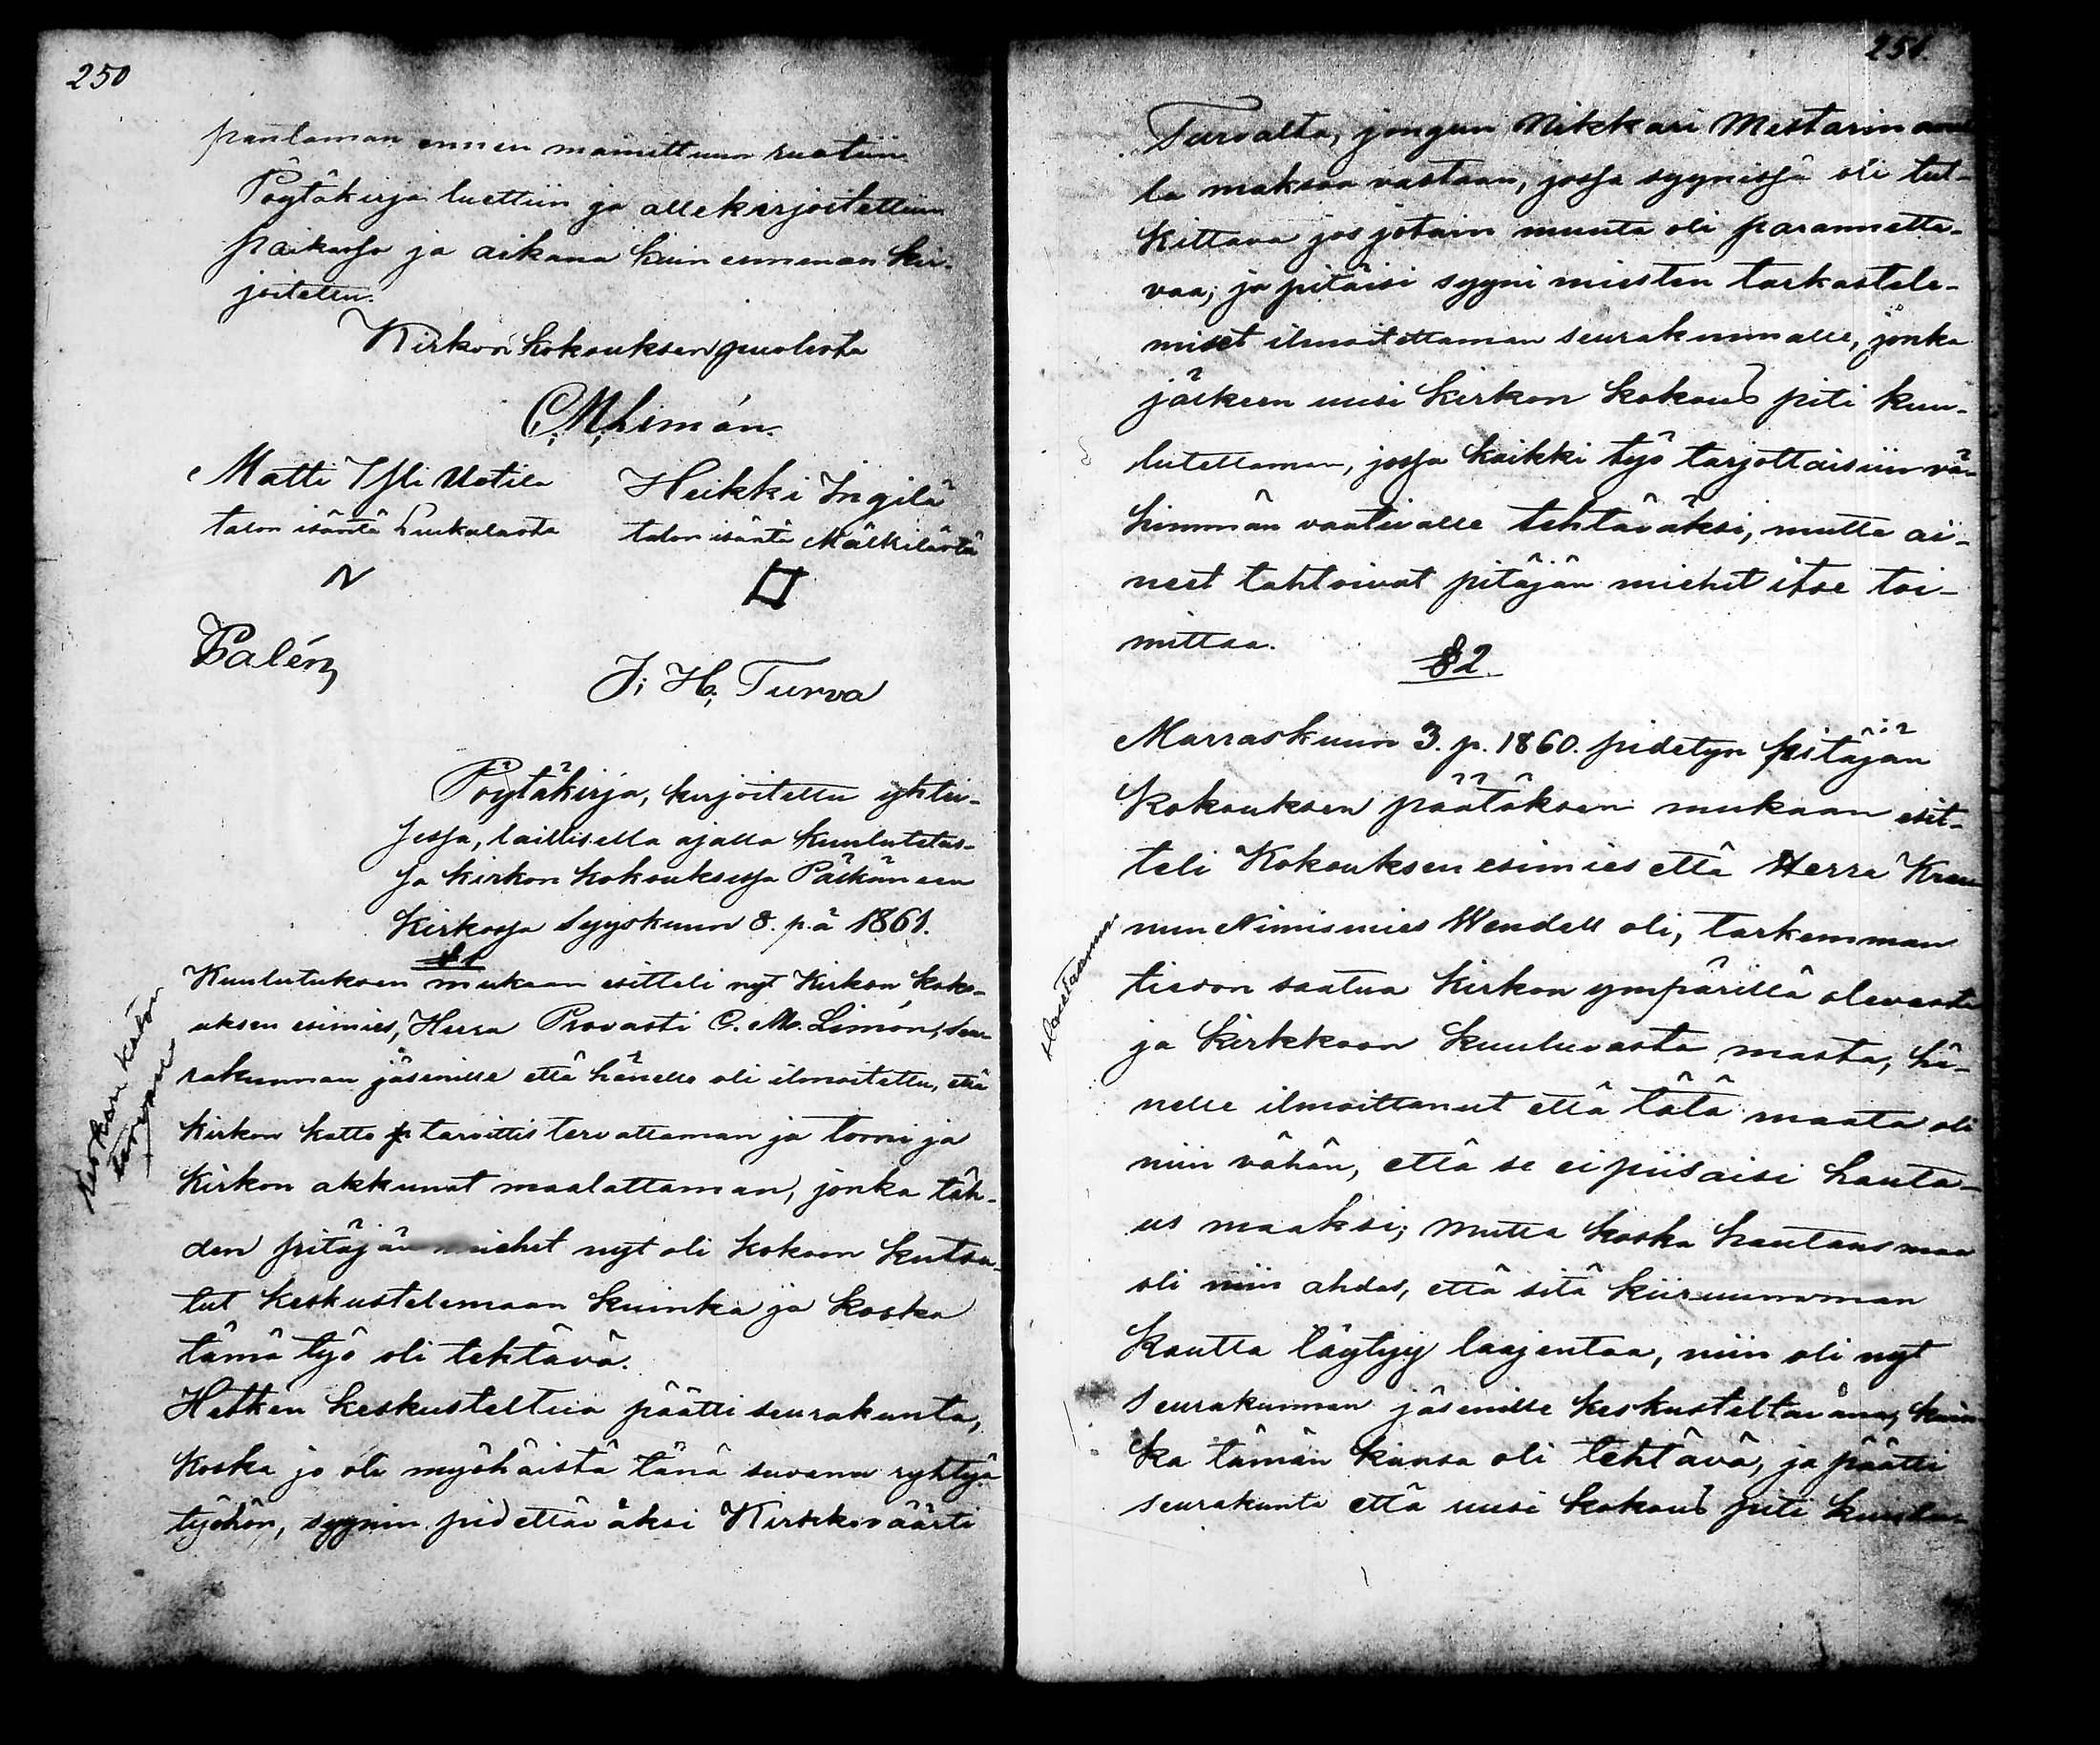 250
pantaman ennen mainittuun ruotiin.
Pöytäkirja luettiin ja allekirjoitettiin
paikassa ja aikana kuin ennenän kir-
joitettu.
Kirkon kokouksen puolesta
C. M. Limón.
Matti Yli Uotila Heikki Ingilä
talon isäntä Luikalasta talon isäntä Mälkilästä
Palén
J. H. Turva
Pöytäkirja, kirjoitettu yhtei-
sessä, laillisella ajalla kuulutetus-
sa kirkon kokouksessa Pälkäneen
kirkossa Syyskuun 8. p:ä 1861.
§ 1
Kirkon katon
tervaus
Kuulutuksen mukaan esitteli nyt Kirkon koko-
uksen esimies, Herra Provasti C. M. Limón, seu-
rakunnan jäsenille että hänelle oli ilmoitettu, että
kirkon katto tarvittis tervattaman ja torni ja
kirkon akkunat maalattaman, jonka täh-
den pitäjän miehet nyt oli kokoon kutsu-
tut keskustelemaan kuinka ja koska
tämä työ oli tehtävä.
Hetken keskusteltua päätti seurakunta,
koska jo oli myöhäistä tänä suvena ryhtyä
työhön, syynin pidettäväksi Kirkkoväärti
251.
Turvalta, jongun Nikkari Mestarin avul-
la maksoa vastaan, jossa syynissä oli tut-
kittava jos jotain muuta oli parannetta-
vaa; ja pitäisi syyni miesten tarkastele-
miset ilmoitettaman seurakunnalle, jonka
jälkeen uusi kirkon kokous piti kuu-
lutettaman, jossa kaikki työ tarjottaisiin vä-
himmän vaativalle tehtäväksi, mutta ai-
neet tahtoivat pitäjän miehet itse toi-
mittaa.
§ 2
Marraskuun 3. p. 1860. pidetyn pitäjän
Kokouksen päätöksen mukaan esit-
teli Kokouksen esimies että Herra Kruu-
nun Nimismies Wendell oli, tarkemman
tiedon saatua kirkon ympärillä olevasta
ja kirkkoon kuuluvasta maasta, hä-
nelle ilmoittanut että tätä maata oli
niin vähän, että se ei piisaisi hauta-
us maaksi; mutta koska hautausmaa
oli niin ahdas, että sitä kiiruumman
kautta täytyy laajentaa, niin oli nyt
seurakunnan jäsenille keskusteltavana, kuin-
ka tämän kanssa oli tehtävä, ja päätti
seurakunta että uusi kokous piti kuulu-